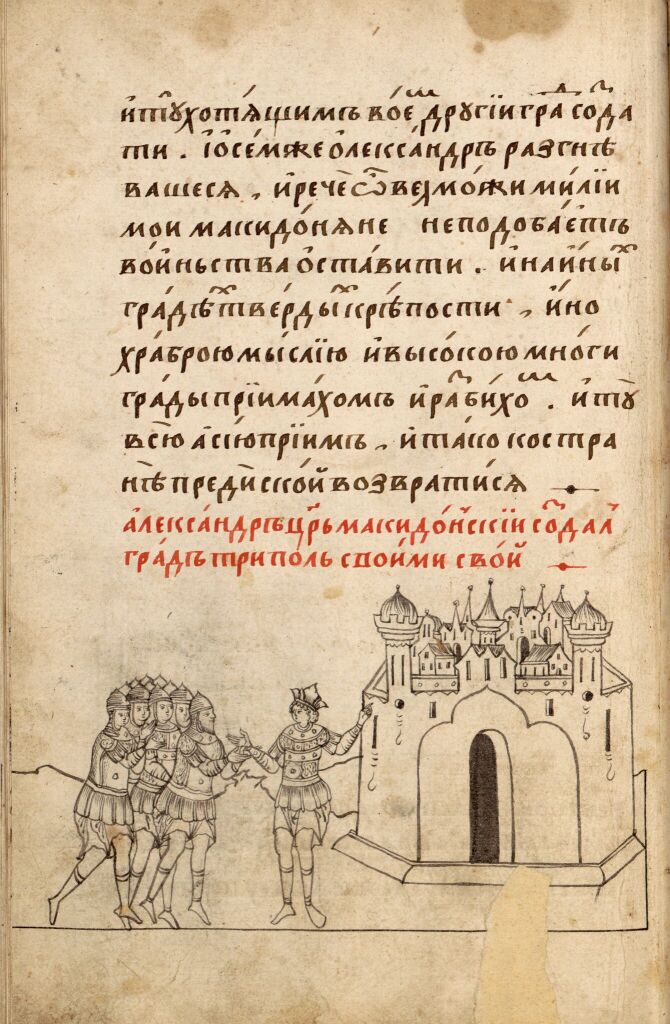 и҆ту̀ хотѧ́щимъ вое҆ дрꙋгїи гра̀ созда
ти . ꙳Ѡ҆ се́мже о҆леѯа́ндръ разгнѣ
вашесѧ , и҆ рече ѿ велмо́жи милїи
мои макидо́нѧне не подоба́етъ
во́иньства ѡ҆ста́вити . и҆ на и҆ны
гра́дѣ тве́рды крѣ́пости , и҆ но
хра́брою мы́слїю и҆ высо́кою мно́ги
гра́ды прїима́хомъ и҆ ра́бихо . и҆ тꙋ
всю̀ а҆сїю прїимъ , и҆ та́ко ко стра
нѣ̀ пре́диско́й возврати́сѧ
а҆леѯа́ндръ цр҃ь макидо́нскїи созда́л
гра́дъ триполь с вои́ми свои